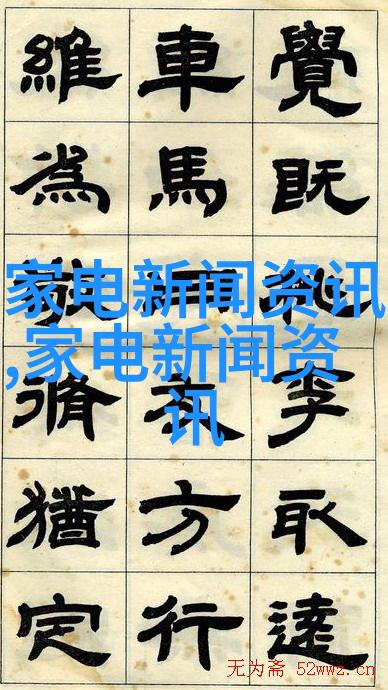 覺既李
車馬方行
維為脩猶定
家电新闻资讯
,家电新闻资
讯
无为斋 52wwz.cn